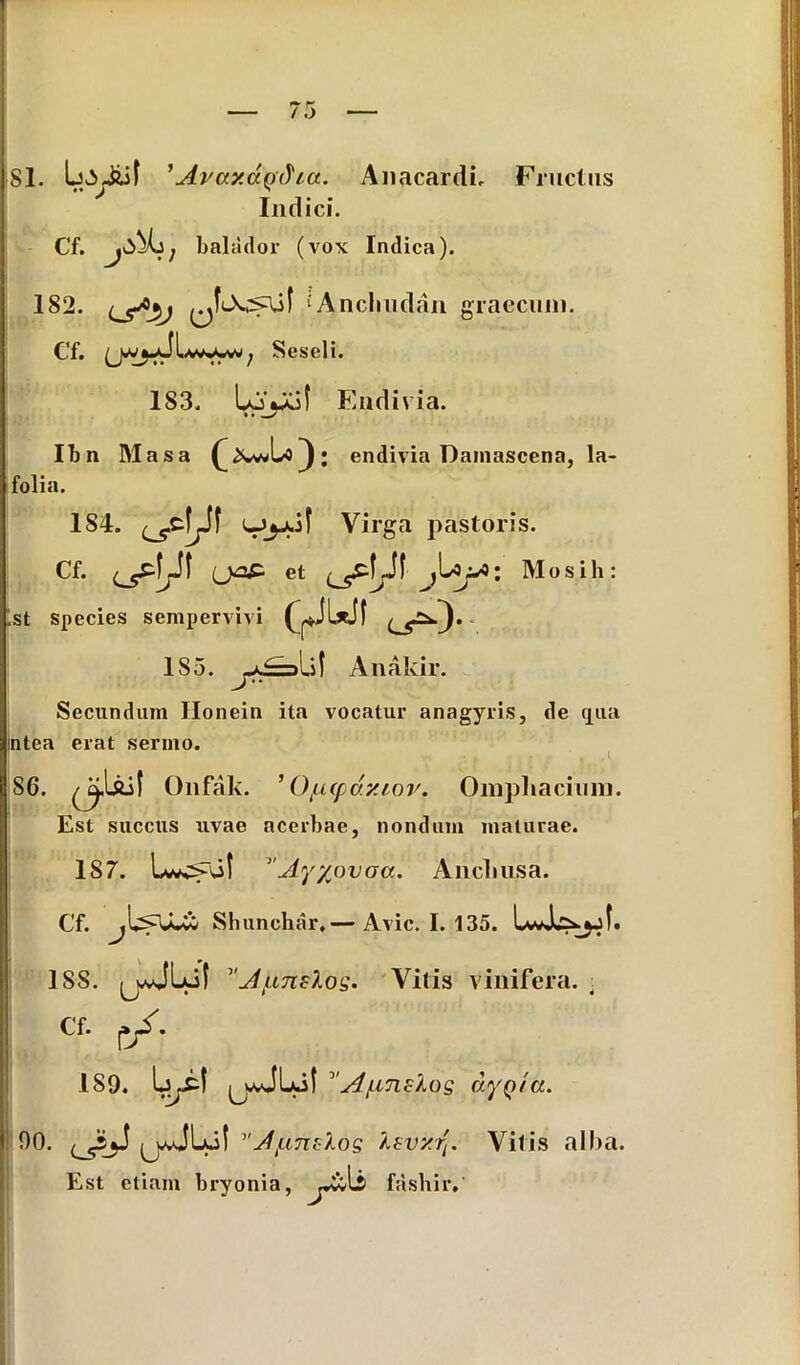 — 75 —
81. انقرديا Ἀνακάρδια. Anacardi. Fructus
Indici.
Cf. بلادر, baládor (vox Indica).
182. انجدان رومى Anchudân graecum.
Cf. سيساليوس, Seseli.
183. انتوبيا Endivia.
Ibn Masa (ماسه): endivia Damascena, la-
folia.
184. انبوب الراعى Virga pastoris.
Cf. عصى الراعى et مزمار الراعى: Mosih:
st species sempervivi (حى العالم).
185. اناكير Anâkir.
Secundum Honein ita vocatur anagyris, de qua
ntea erat sermo.
86. انفاق Onfâk. Ὀμφάκιον. Omphacium.
Est succus uvae acerbae, nondum maturae.
187. انجسا Ἄγχουσα. Anchusa.
Cf. شنجار Shunchâr. — Avic. I. 135. ايوجلسا.
188. انبالس Ἄμπελος. Vitis vinifera.
Cf. كرم.
189. انبالس اغريا Ἄμπελος ἀγρία.
90. انبالس لوقى Ἄμπελος λευκή. Vitis alba.
Est etiam bryonia, فاشير fáshir.